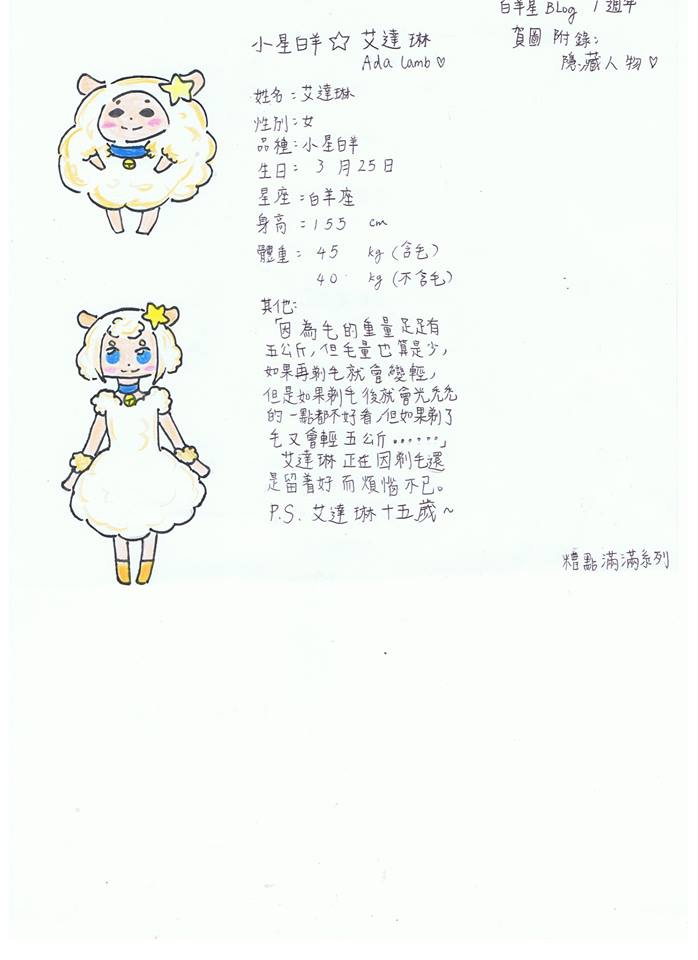 白羊星 BLog 1 週年
賀圖 附錄:
隱藏人物♡
小星白羊☆ 艾達琳
Ada Lamb♡
姓名:艾達琳
性別:女
品種:小星白羊
生日: 3 月25日
星座:白羊座
身高 :155 cm
體重: 45 kg (含毛)
40 kg (不含毛)
其他:
「因為毛的重量足足有
五公斤,但毛量也算是少,
如果再剃毛就會變輕,
但是如果剃毛後就會光禿禿
的一點都不好看,但如果剃了
毛又會輕五公斤……」
艾達琳正在因剃毛還
是留着好而煩惱不已。
P.S. 艾達琳十五歲~
糟點滿滿系列